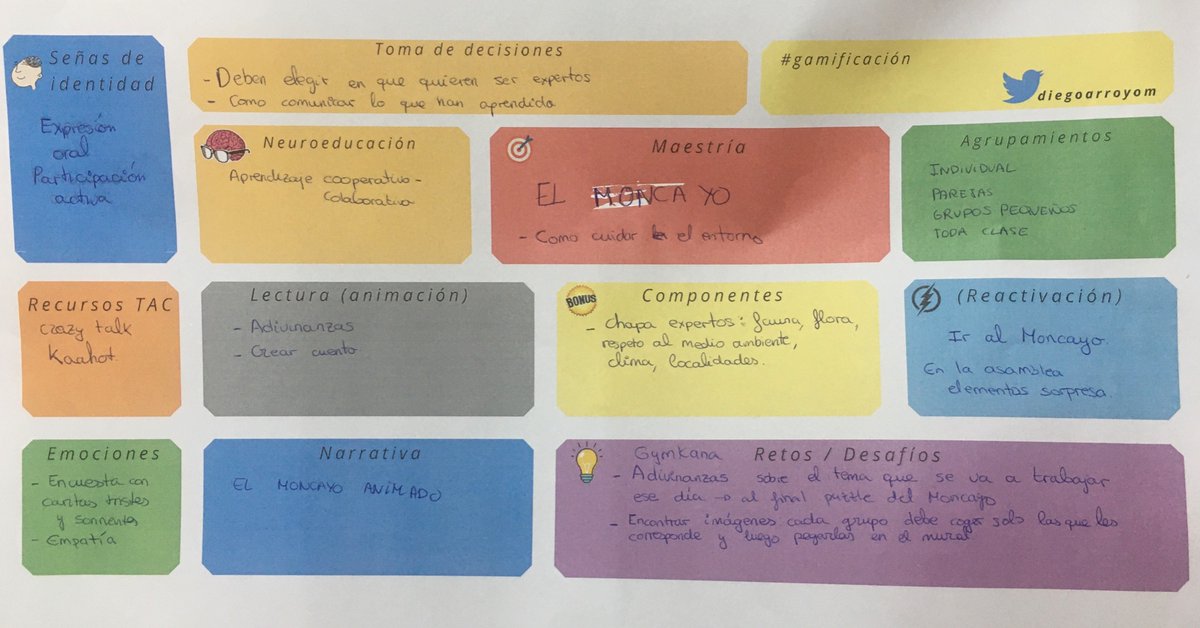 Señas de
identidad
Expresión
oral
Participación
activa
Toma de decisiones
- Deben elegir en que quieren ser expertos
- Como comunicar lo que han aprendido
#gamificación
diegoarroyom
Neuroeducación
Aprendizaje cooperativo -
colaborativo
Maestría
EL MONCAYO
- Como cuidar el entorno
Agrupamientos
INDIVIDUAL
PAREJAS
GRUPOS PEQUEÑOS
TODA CLASE
Recursos TAC
Crazy talk
Kaahot
Lectura (animación)
- Adivinanzas
- Crear cuento
BONUS
Componentes
- Chapa expertos: fauna, flora,
respeto al medio ambiente,
clima, localidades.
(Reactivación)
Ir al Moncayo.
En la asamblea
elementos sorpresa.
Emociones
- Encuesta con
caritas tristes
y sonrientes
- Empatía
Narrativa
EL MONCAYO ANIMADO
Retos / Desafíos
Gymkana
- Adivinanzas sobre el tema que se va a trabajar
ese día → al final puzzle del Moncayo
- Encontrar imágenes cada grupo debe coger solo las que les
corresponde y luego pegarlas en el mural